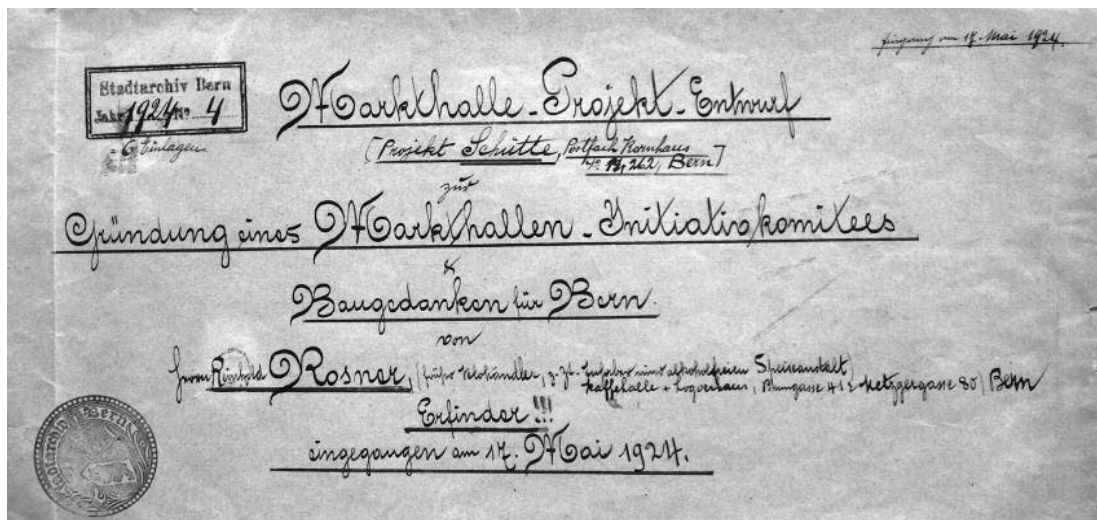 Eingang am 17. Mai 1924.
Stadtarchiv Bern
Jahr 1924 No 4
6 Einlagen
Markthalle-Projekt-Entwurf
[Projekt Schütte, Postfach Kornhaus
No. 262, Bern]
zur
Gründung eines Markthallen-Initiativkomitees
&
Baugedanken für Bern.
von
Herrn Reinhold Rosner, (früher Velohändler, z. Zt. Inhaber einer alkoholfreien Speiseanstalt,
Kaffehalle + Logierhaus, Brunngasse 41 & Metzgergasse 80) Bern
Erfinder!!!
eingegangen am 17. Mai 1924.
Stadtarchiv Bern